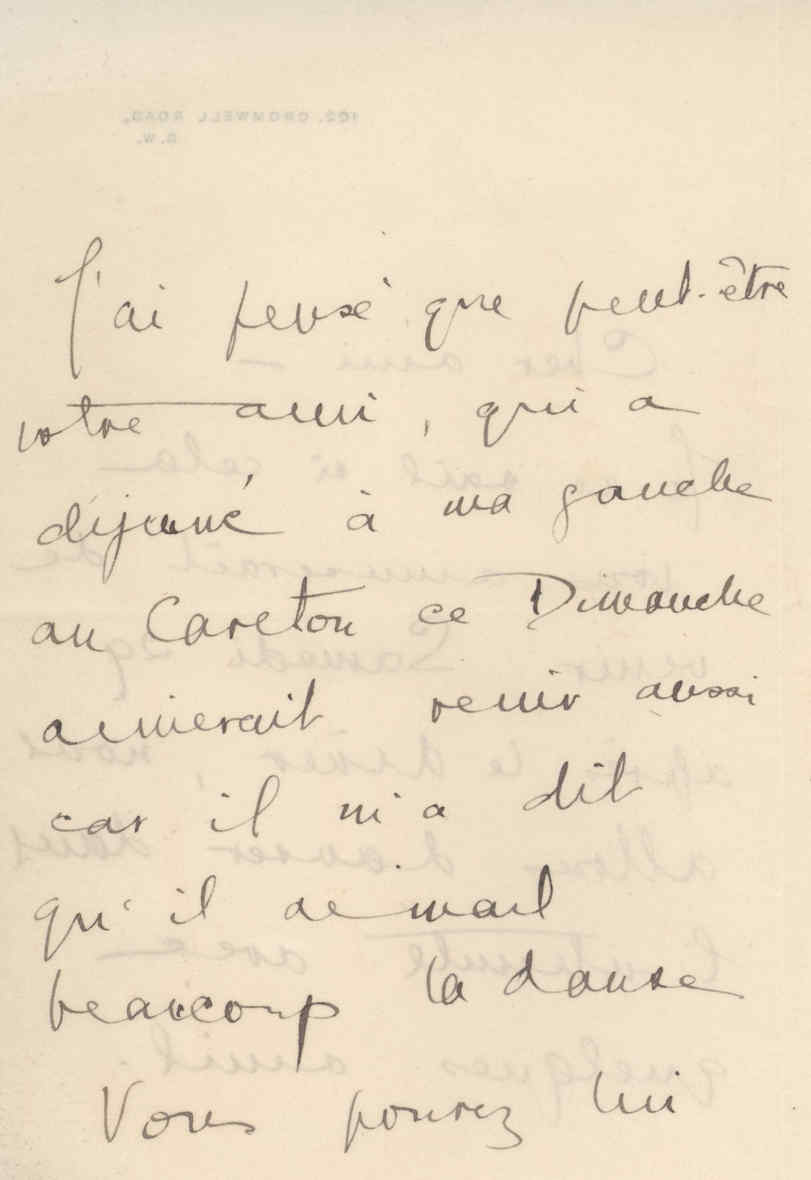 102, CROMWELL ROAD,
S.W.
J'ai pensé que peut-être
votre ami, qui a
déjeuné à ma gauche
au Careton ce Dimanche
aimerait venir aussi
car il m'a dit
qu'il aimait
beaucoup la danse
Vous pouvez lui